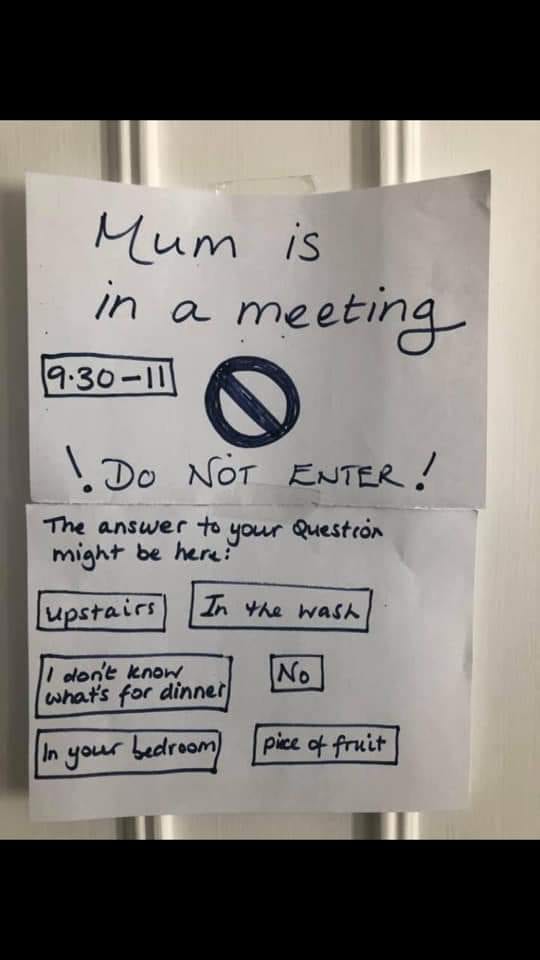 Mum is
in a meeting
9.30-11
! DO NOT ENTER!
The answer to your Question
might be here:
upstairs In the wash
I don't know
what's for dinner No
In your bedroom pice of fruit